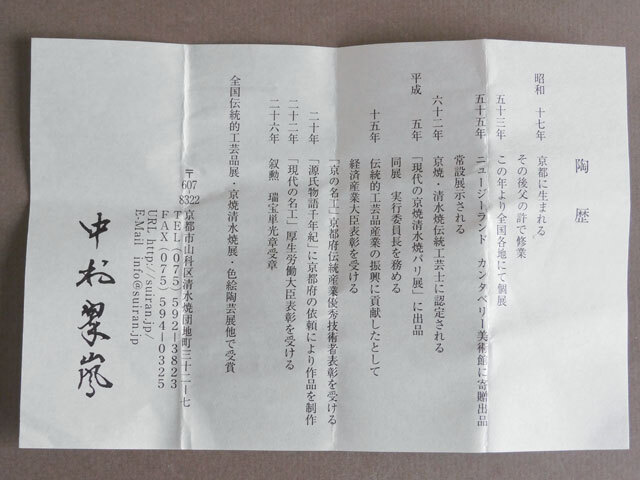 陶歴
昭和 十七年 京都に生まれる
その後父の許で修業
五十三年 この年より全国各地にて個展
五十五年 ニュージーランド カンタベリー美術館に寄贈出品
常設展示される
六十二年 京焼・清水焼伝統工芸士に認定される
平成 五年 「現代の京焼清水焼パリ展」に出品
同展 実行委員長を務める
十五年 伝統的工芸品産業の振興に貢献したとして
経済産業大臣表彰を受ける
「京の名工」京都府伝統産業優秀技術者表彰を受ける
二十年 「源氏物語千年紀」に京都府の依頼により作品を制作
二十二年 「現代の名工」厚生労働大臣表彰を受ける
二十六年 叙勲 瑞宝単光章受章
全国伝統的工芸品展・京焼清水焼展・色絵陶芸展他で受賞
〒607-8322
京都市山科区清水焼団地町三十二ー七
TEL(075)592-3823
FAX(075)594-0325
URL http://suiran.jp/
E-Mail info@suiran.jp
中村翠嵐